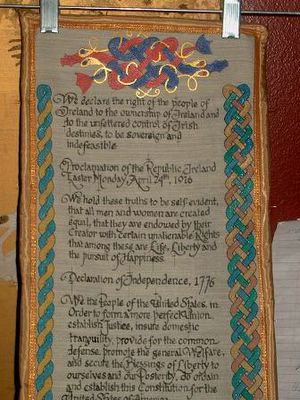 We declare the right of the people of
Ireland to the ownership of Ireland and
to the unfettered control of Irish
destinies, to be sovereign and
indefeasible
Proclamation of the Republic Ireland
Easter Monday, April 24th, 1916
We hold these truths to be self-evident,
that all men and women are created
equal, that they are endowed by their
Creator with certain unalienable Rights
that among these are Life, Liberty and
the pursuit of Happiness.
Declaration of Independence, 1776
We the People of the United States, in
Order to form a more perfect Union,
establish Justice, insure domestic
tranquility, provide for the common
defense, promote the general Welfare,
and secure the Blessings of Liberty to
ourselves and our Posterity, do ordain
and establish this Constitution for the
United States of America